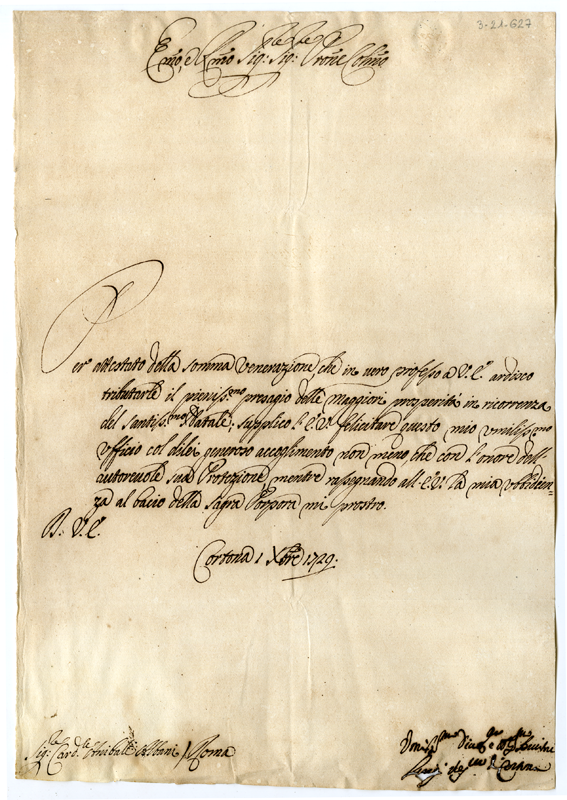 3-21-627
Em̃o, e Rm̃o Sig:re Sig:re Prõne Colm̃o
Per attestato della somma venerazione, che in vero professo a V.E. ardisco
tributarle il pieniss:mo presagio delle maggiori prosperità in ricorrenza
del santiss:mo Natale; supplico l'E.V. felicitare questo mio umiliss:mo
ufficio col di lei generoso accoglimento non meno che con l'onore dell'
autorevole sua Protezione, mentre rassegnando all'E.V. la mia ubbidien=
za al bacio della Sagra Porpora mi prostro.
D: V.E.
Cortona 1 Xbre 1729.
Sig:re Card:le Annibale Albani / Roma